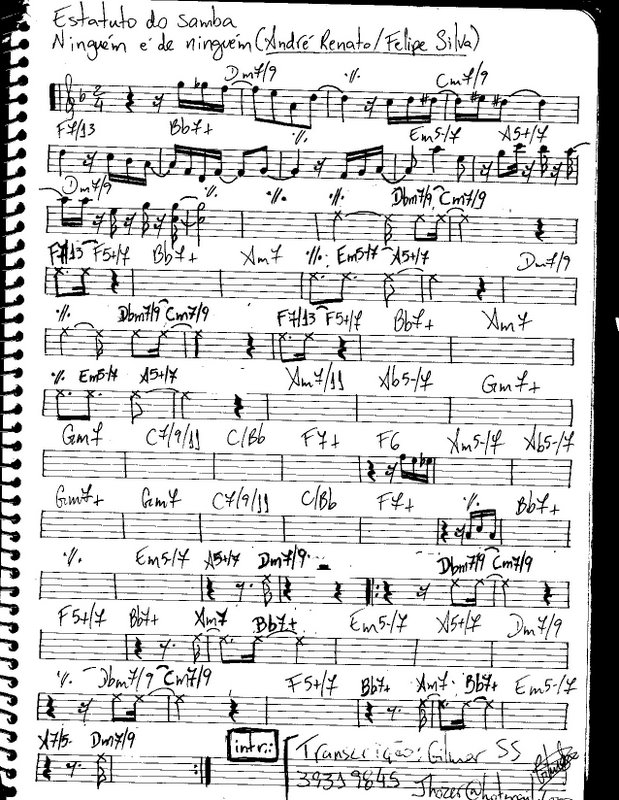 Estatuto do Samba
Ninguém é de ninguém (André Renato/Felipe Silva)
Dm7/9 ٪ Cm7/9
2/4
F7/13 Bb7+ ٪ Em5-/7 A5+/7
Dm7/9 ٪ ٪ ٪ Dbm7/9 Cm7/9
F7/13 F5+/7 Bb7+ Am7 ٪ Em5-/7 A5+/7 Dm7/9
٪ Dbm7/9 Cm7/9 F7/13 F5+/7 Bb7+ Am7
٪ Em5-/7 A5+/7 Am7/11 Ab5-/7 Gm7+
Gm7 C7/9/11 C/Bb F7+ F6 Am5-/7 Ab5-/7
Gm7+ Gm7 C7/9/11 C/Bb F7+ ٪ Bb7+
٪ Em5-/7 A5+/7 Dm7/9 Dbm7/9 Cm7/9
F5+/7 Bb7+ Am7 Bb7+ Em5-/7 A5+/7 Dm7/9
٪ Dbm7/9 Cm7/9 F5+/7 Bb7+ Am7 Bb7+ Em5-/7
A7/5- Dm7/9 intr:: Transcrição: Gilmar SS
39319845